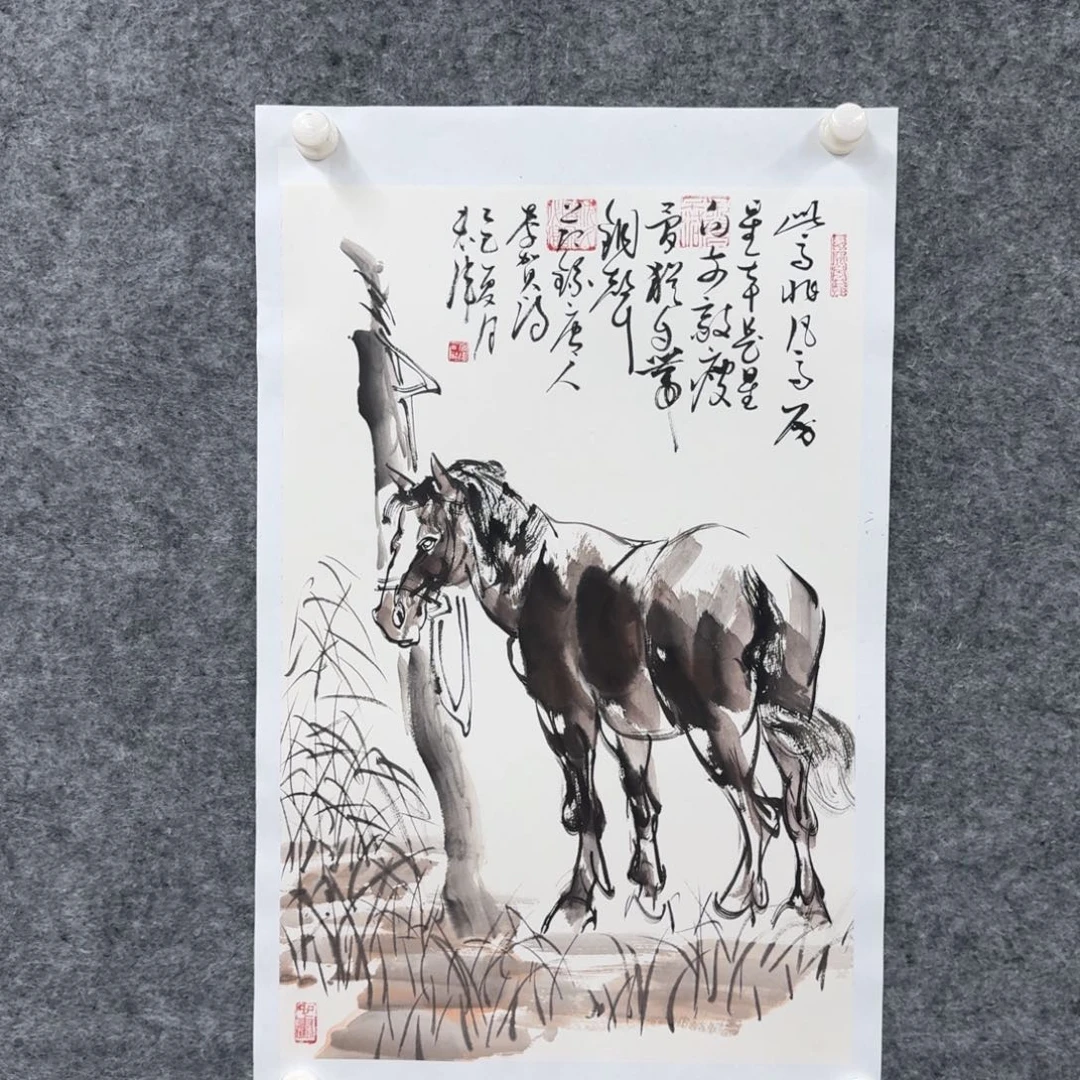 此马非凡马房
星本是星
向前敲瘦
骨犹自带
铜声
录唐人
李贺诗
乙巳夏月